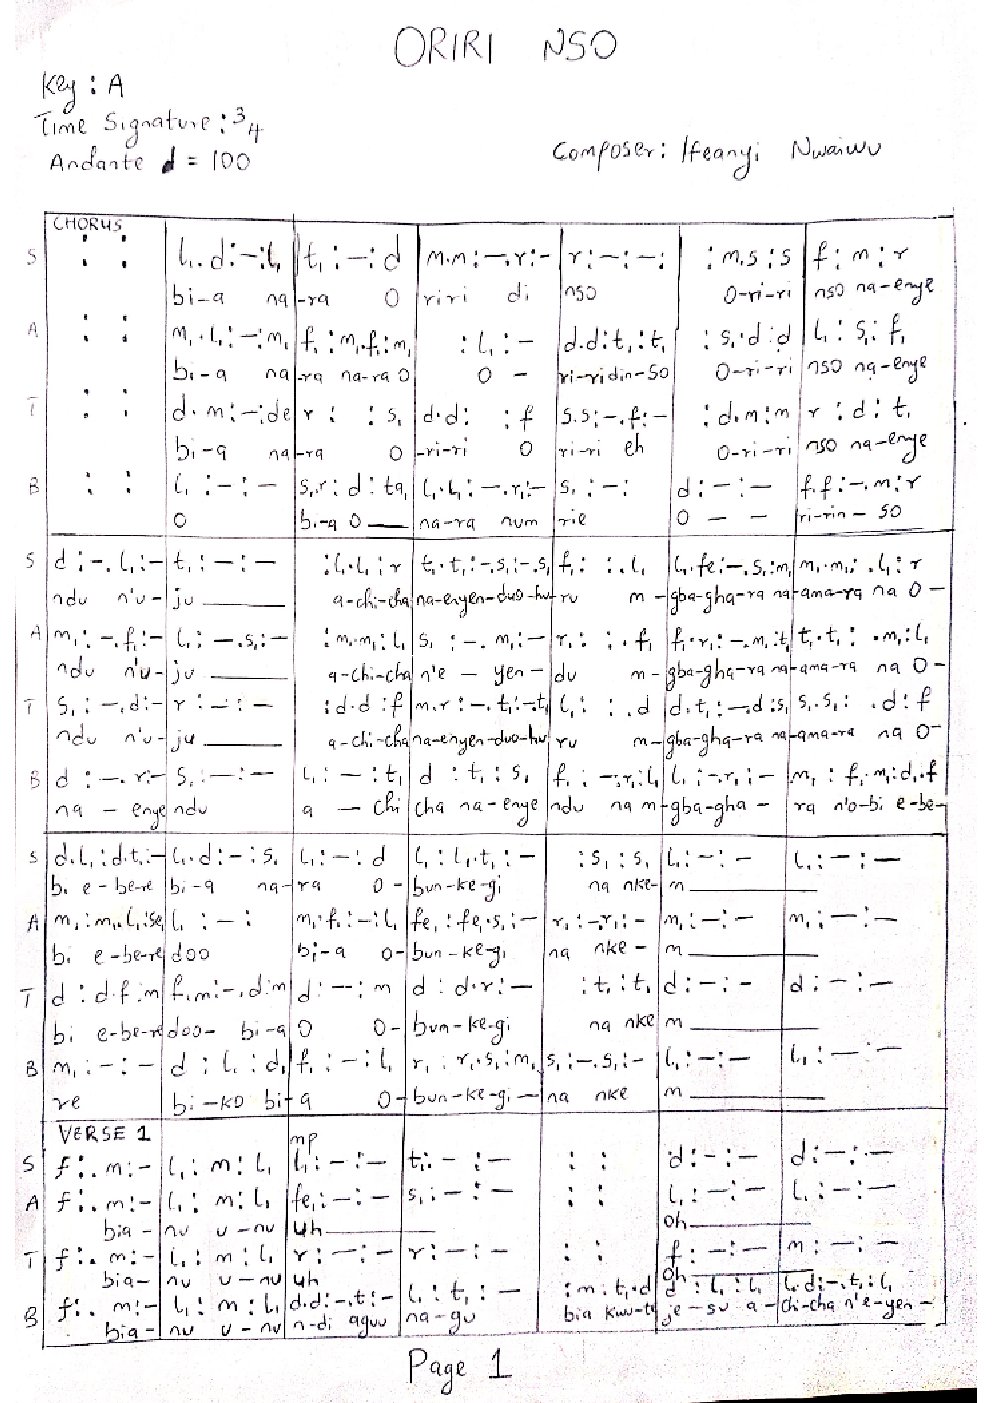 ORIRI NSO
Key : A
Time Signature : 3/4
Andante d = 100
Composer: Ifeanyi Nwaiwu
CHORUS
S : : l₁.d:-:l₁ t₁:-:d m.m:-.r:- r:-:-: :m.s:s f:m:r
bi-a na-ra O riri di nso O-ri-ri nso na-enye
A : : m₁.l₁:-:m₁ f₁:m₁.f₁:m₁ :l₁:- d.d:t₁:t₁ :s₁.d:d l₁:s₁:f₁
bi-a na-ra na-ra O O - ri-ridin-so O-ri-ri nso na-enye
T : : d.m:-:de r: :s₁ d.d: :f s.s:-.f:- :d.m:m r:d:t₁
bi-a na-ra O -ri-ri O ri-ri eh O-ri-ri nso na-enye
B : : l₁:-:- s₁.r:d:ta₁ l₁.l₁:-.r₁:- s₁:-: d:-:- f.f:-.m:r
O bi-a O na-ra num rie O - - ri-rin-so
S d:-.l₁:- t₁:-:- :l₁.l₁:r t₁.t₁:-.s₁:-.s₁ f₁: :.l₁ l₁.fe:-.s₁:m₁ m₁.m₁: .l₁:r
ndu n'u-ju a-chi-cha na-enyen-duo-hu-ru m-gba-gha-ra na-ama-ra na O-
A m₁:-.f₁:- l₁:-.s₁:- :m₁.m₁:l₁ s₁:-.m₁:- r₁: :.f₁ f₁.r₁:-.m₁:t₁ t₁.t₁: .m₁:l₁
ndu n'u-ju a-chi-cha n'e-yen-du m-gba-gha-ra na-ama-ra na O-
T s₁:-.d:- r:-:- :d.d:f m.r:-.t₁:-.t₁ l₁: :.d d.t₁:-.d:s₁ s₁.s₁: .d:f
ndu n'u-ju a-chi-cha na-enyen-duo-hu ru m-gba-gha-ra na-ama-ra na O-
B d:-.r:- s₁:-:- l₁:-:t₁ d:t₁:s₁ f₁:-.r₁:l₁ l₁:-.r₁:- m₁:f₁.m₁:d₁.f
na-enye ndu a-chi cha na-enye ndu na m-gba-gha-ra n'o-bi e-be-
S d.l₁:d.t₁:- l₁.d:-:s₁ l₁:-:d l₁:l₁.t₁:- :s₁:s₁ l₁:-:- l₁:-:-
bi e-be-re bi-a na-ra O-bun-ke-gi na nke-m
A m₁:m₁.l₁:se₁ l₁:-: m₁.f₁:-:l₁ fe₁:fe₁.s₁:- r₁:-.r₁:- m₁:-:- m₁:-:-
bi e-be-re doo bi-a O-bun-ke-gi na nke-m
T d:d.f:m f.m:-.d:m d:-:m d:d.r:- :t₁:t₁ d:-:- d:-:-
bi e-be-re doo- bi-a O O-bun-ke-gi na nke m
B m₁:-:- d:l₁:d₁ f₁:-:l₁ r₁:r₁.s₁:m₁ s₁:-.s₁:- l₁:-:- l₁:-:-
re bi-ko bi-a O-bun-ke-gi-na nke m
VERSE 1
mp
S f:.m:- l₁:m:l₁ l₁:-:- t₁:-:- : : d:-:- d:-:-
A f:.m:- l₁:m:l₁ fe₁:-:- s₁:-:- : : l₁:-:- l₁:-:-
bia-nu u-nu uh oh
T f:.m:- l₁:m:l₁ r:-:- r:-:- : : f:-:- m:-:-
bia-nu u-nu uh oh
B f:.m:- l₁:m:l₁ d.d:-.t₁:- l₁:t₁:- :m:t₁.d d:l₁:l₁ l₁.d:-.t₁:l₁
bia-nu u-nu n-di aguu na-gu bia kwu-te je-su a-chi-cha n'e-yen-
Page 1